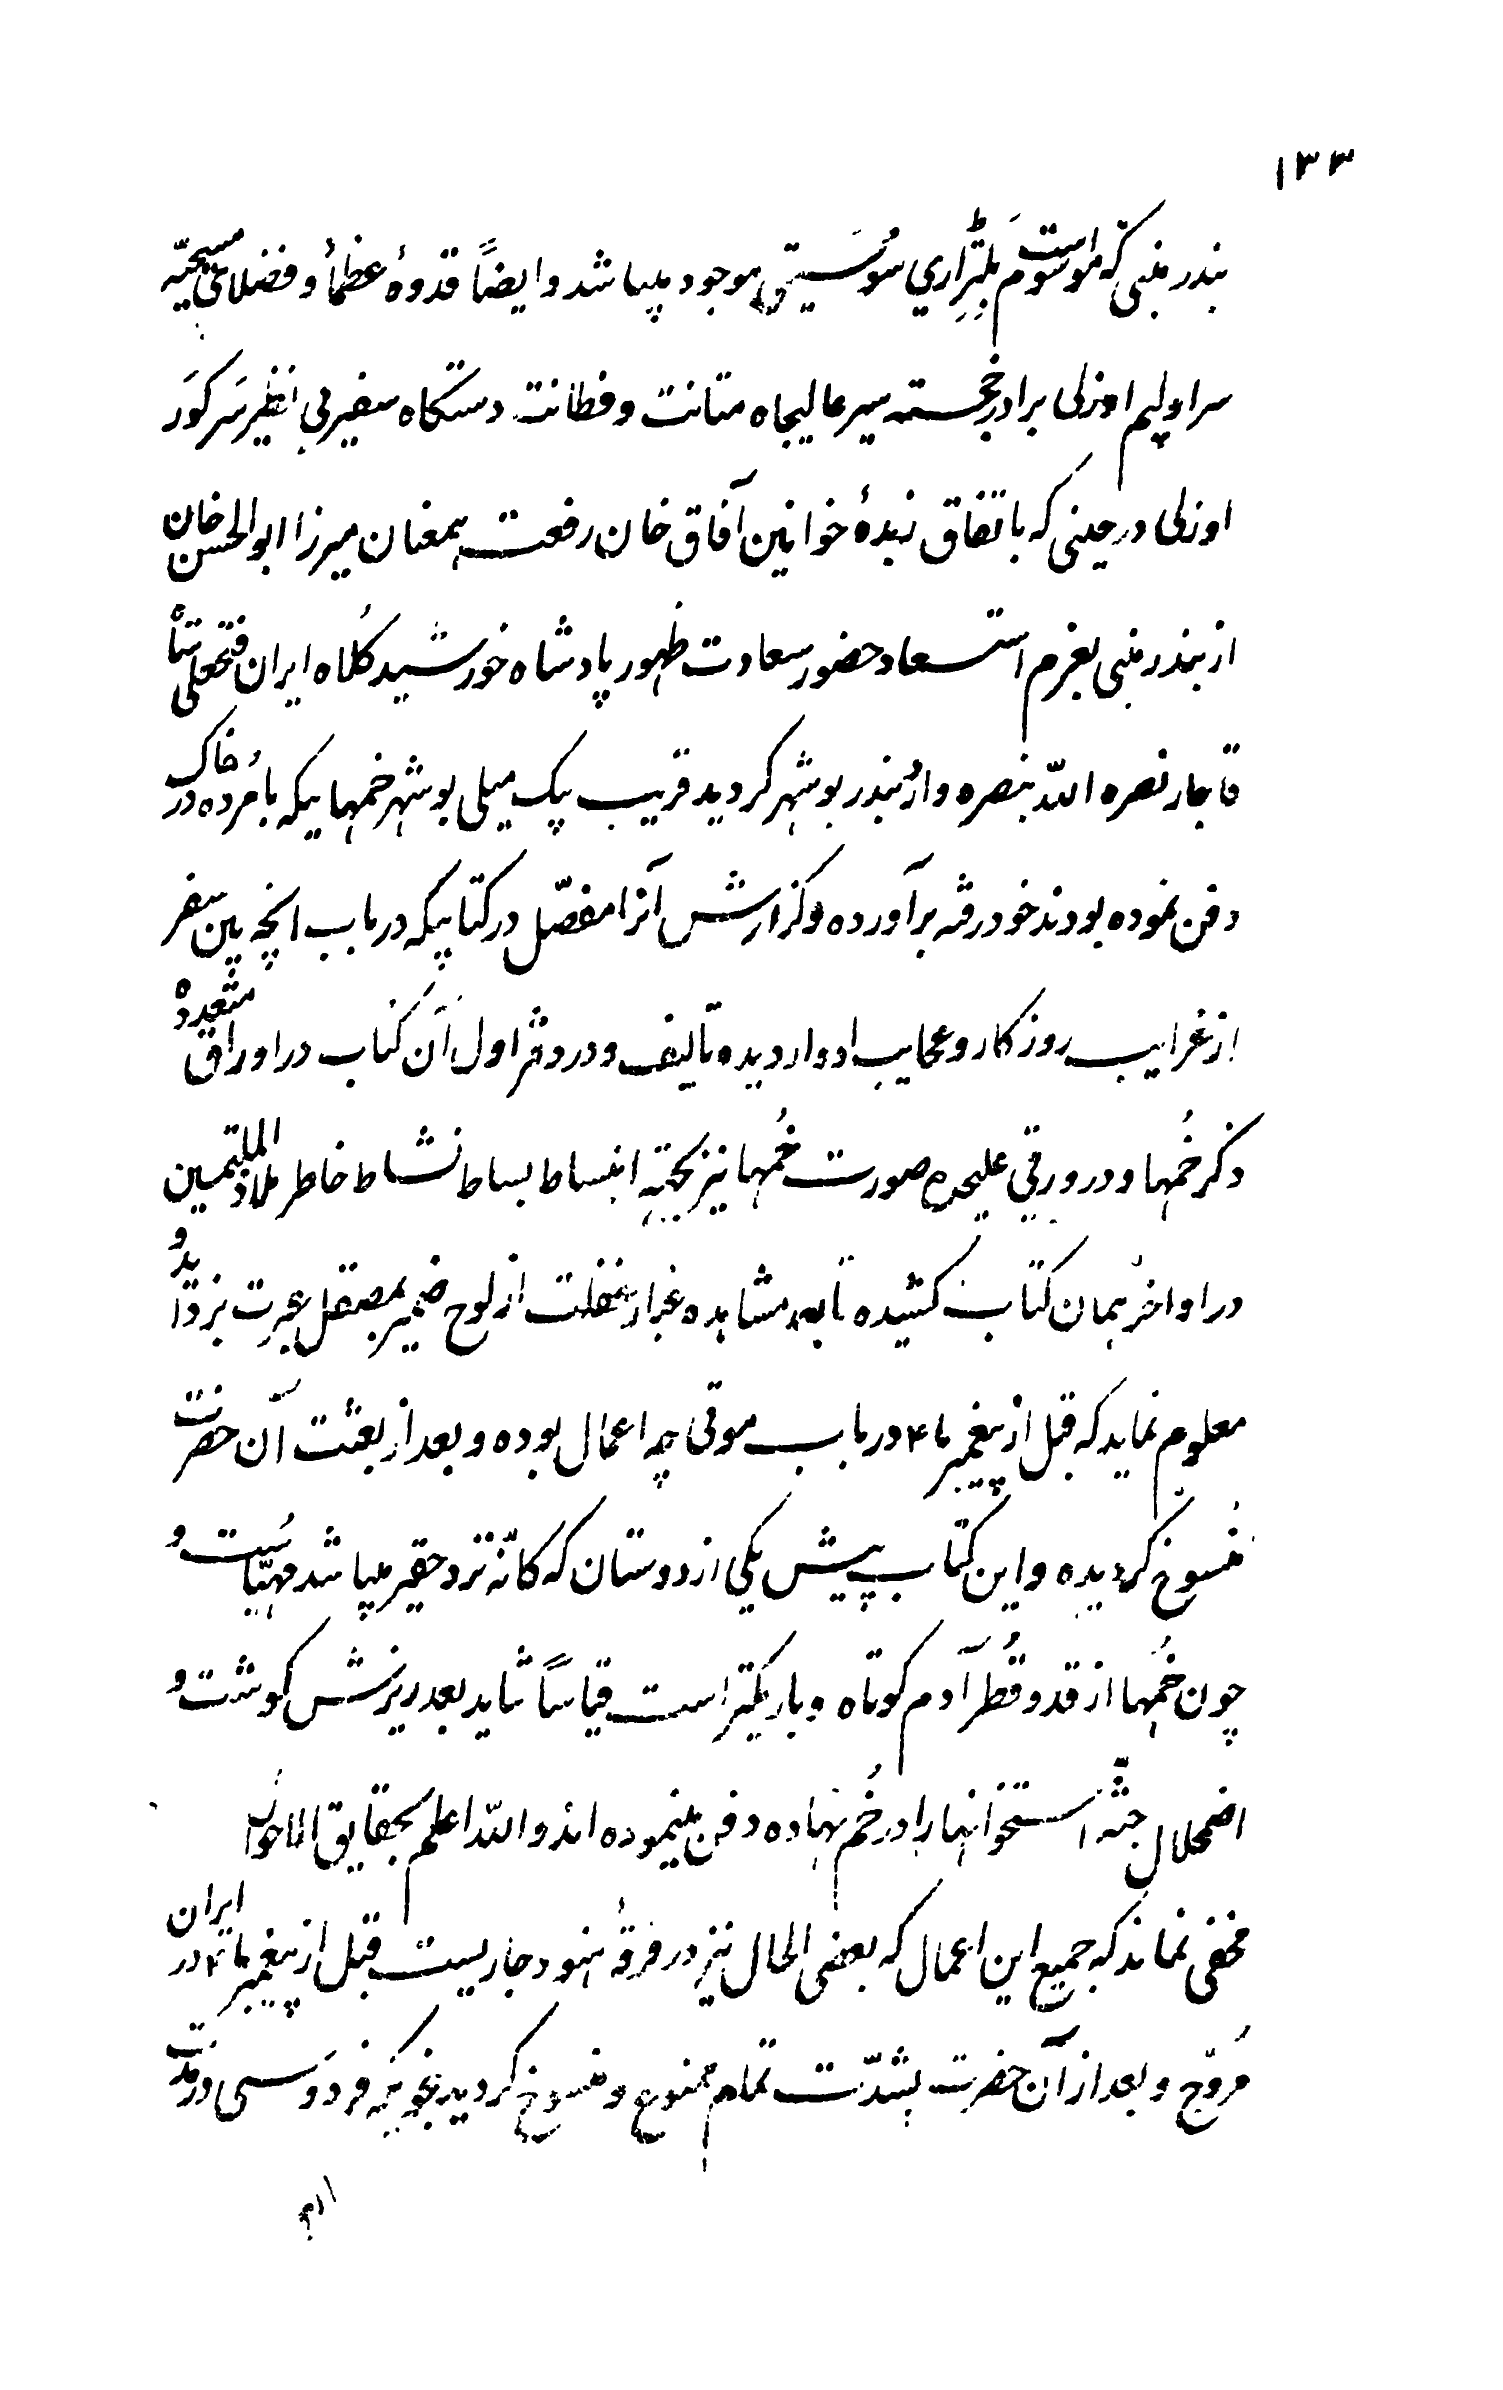 ۱۳۳
بندر منبی که موسوم است بلِتِرِاری سُوسَیتی موجود میباشد و ایضاً قدوهٔ عظمأ و فضلای مسیحیّه
سر اولیم اوزلی برادر خجسته سیر عالیجاه متانت و فطانت دستکاه سفیر بی نظیر سَر کورَ
اوزلی در حینی که باتفاق زبدهٔ خوانین آفاق خان رفعت بمغان میرزا ابوالحسن خان
از بندر منبی بعزم استسعاد حضور سعادت ظهور پادشاه خورشید کُلاه ایران فتحعلی شاه
قاجار نصره الله بنصره وارُد بندر بوشهر کردید قریب یک میلی بوشهر خمهایکه با مُرده در خاک
دفن نموده بودند خود رفته برآورده و کزارش آنرا مفصّل در کتابیکه در باب انچه بین سفر
از غرایب روزکار و عجایب ادوار دیده تالیف و در دفتر اول آن کتاب در اوراق متعدده
ذکر خُمها و در ورقی علیحده صورت خُمها نیز بجهته انبساط بساط نشاط خاطر ملاذ الملتمسین
در اواخر همان کتاب کشیده تا بعد مشاهده غبار غفلت از لوح ضمیر بمصقل عبرت بزداید و
معلوم نماید که قبل از پیغمبر ما ۴ در باب موتی چه اعمال بوده و بعد از بعثت آن حضرت
منسوخ کردیده و این کتاب پیش یکی از دوستان که کانّه نزد حقیر میباشد مهیّاست و
چون خُمها از قد و قُطر آدم کوتاه و باریکتر است قیاساً شاید بعد ریزش کوشت و
اضمحلال جثّه استخوانها را در خُم نهاده دفن مینموده اند و الله اعلم بحقایق الاحوال
مخفی نماند که جمیع این اعمال که بعضی الحال نیز در فرقهٔ هنود جاریست قبل از پیغمبر ما ۴ در ایران
مُروّج و بعد از آن حضرت بشدّت تمام ممنوع و منسوخ کردید بنحویکه فردوسی در مذمت